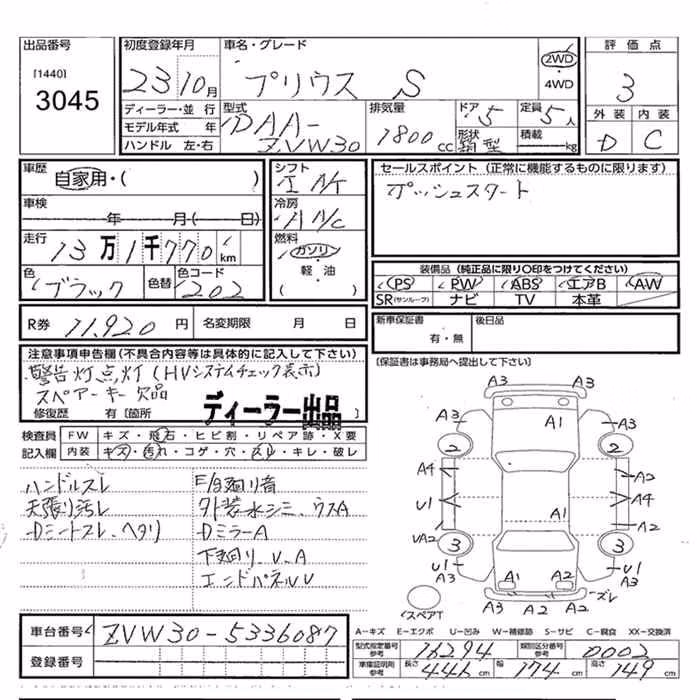 出品番号
[1440]
3045
初度登録年月
23 10月
車名・グレード
プリウス S
2WD
4WD
評価点
3
外装 内装
D C
ディーラー・並行
モデル年式 年
ハンドル 左・右
型式
DAA-
ZVW30
排気量
1800 CC
ドア
5
形状
箱型
定員
5人
積載
kg
車歴
自家用・( )
車検
年 月( 日)
走行
13万1千770 km
色
ブラック
色替
色コード
202
シフト
I A/T
冷房
A A/C
燃料
ガソリン
軽・油
( )
セールスポイント (正常に機能するものに限ります)
プッシュスタート
装備品 (純正品に限り○印をつけてください)
PS PW ABS エアB AW
SR(サンルーフ) ナビ TV 本革
R券 11,920円 名変期限 月 日
新車保証書
有・無
後日品
(保証書は事務局へ提出して下さい)
注意事項申告欄(不具合内容等は具体的に記入して下さい)
警告灯点灯(HVシステムチェック表示)
スペアーキー欠品
修復歴 有〔箇所
ディーラー出品
検査員
記入欄
FW キズ・飛石・ヒビ割・リペア跡・X要
内装 キズ・汚れ・コゲ・穴・スレ・キレ・破レ
ハンドルスレ
天張り汚レ
Dシートスレ、ヘタリ
E/g廻り音
外装水シミ、ウスA
DミラーA
下廻り、U、A
エンドパネルU
A3 A3
A3 A1 A3
2 2
A4 A2
U1 A4
A1 A2
VA2
3 3
U1 A3 A1 A2 U1 A3
ズレ
A3 A2 A2
スペアT
車台番号 ZVW30-5336087
登録番号
A-キズ E-エクボ U-凹み W-補修跡 S-サビ C-腐食 XX-交換済
型式指定番号
参考
16294
類別区分番号
参考
0002
車庫証明用
参考
長さ 446 cm 幅 174 cm 高さ 149 cm